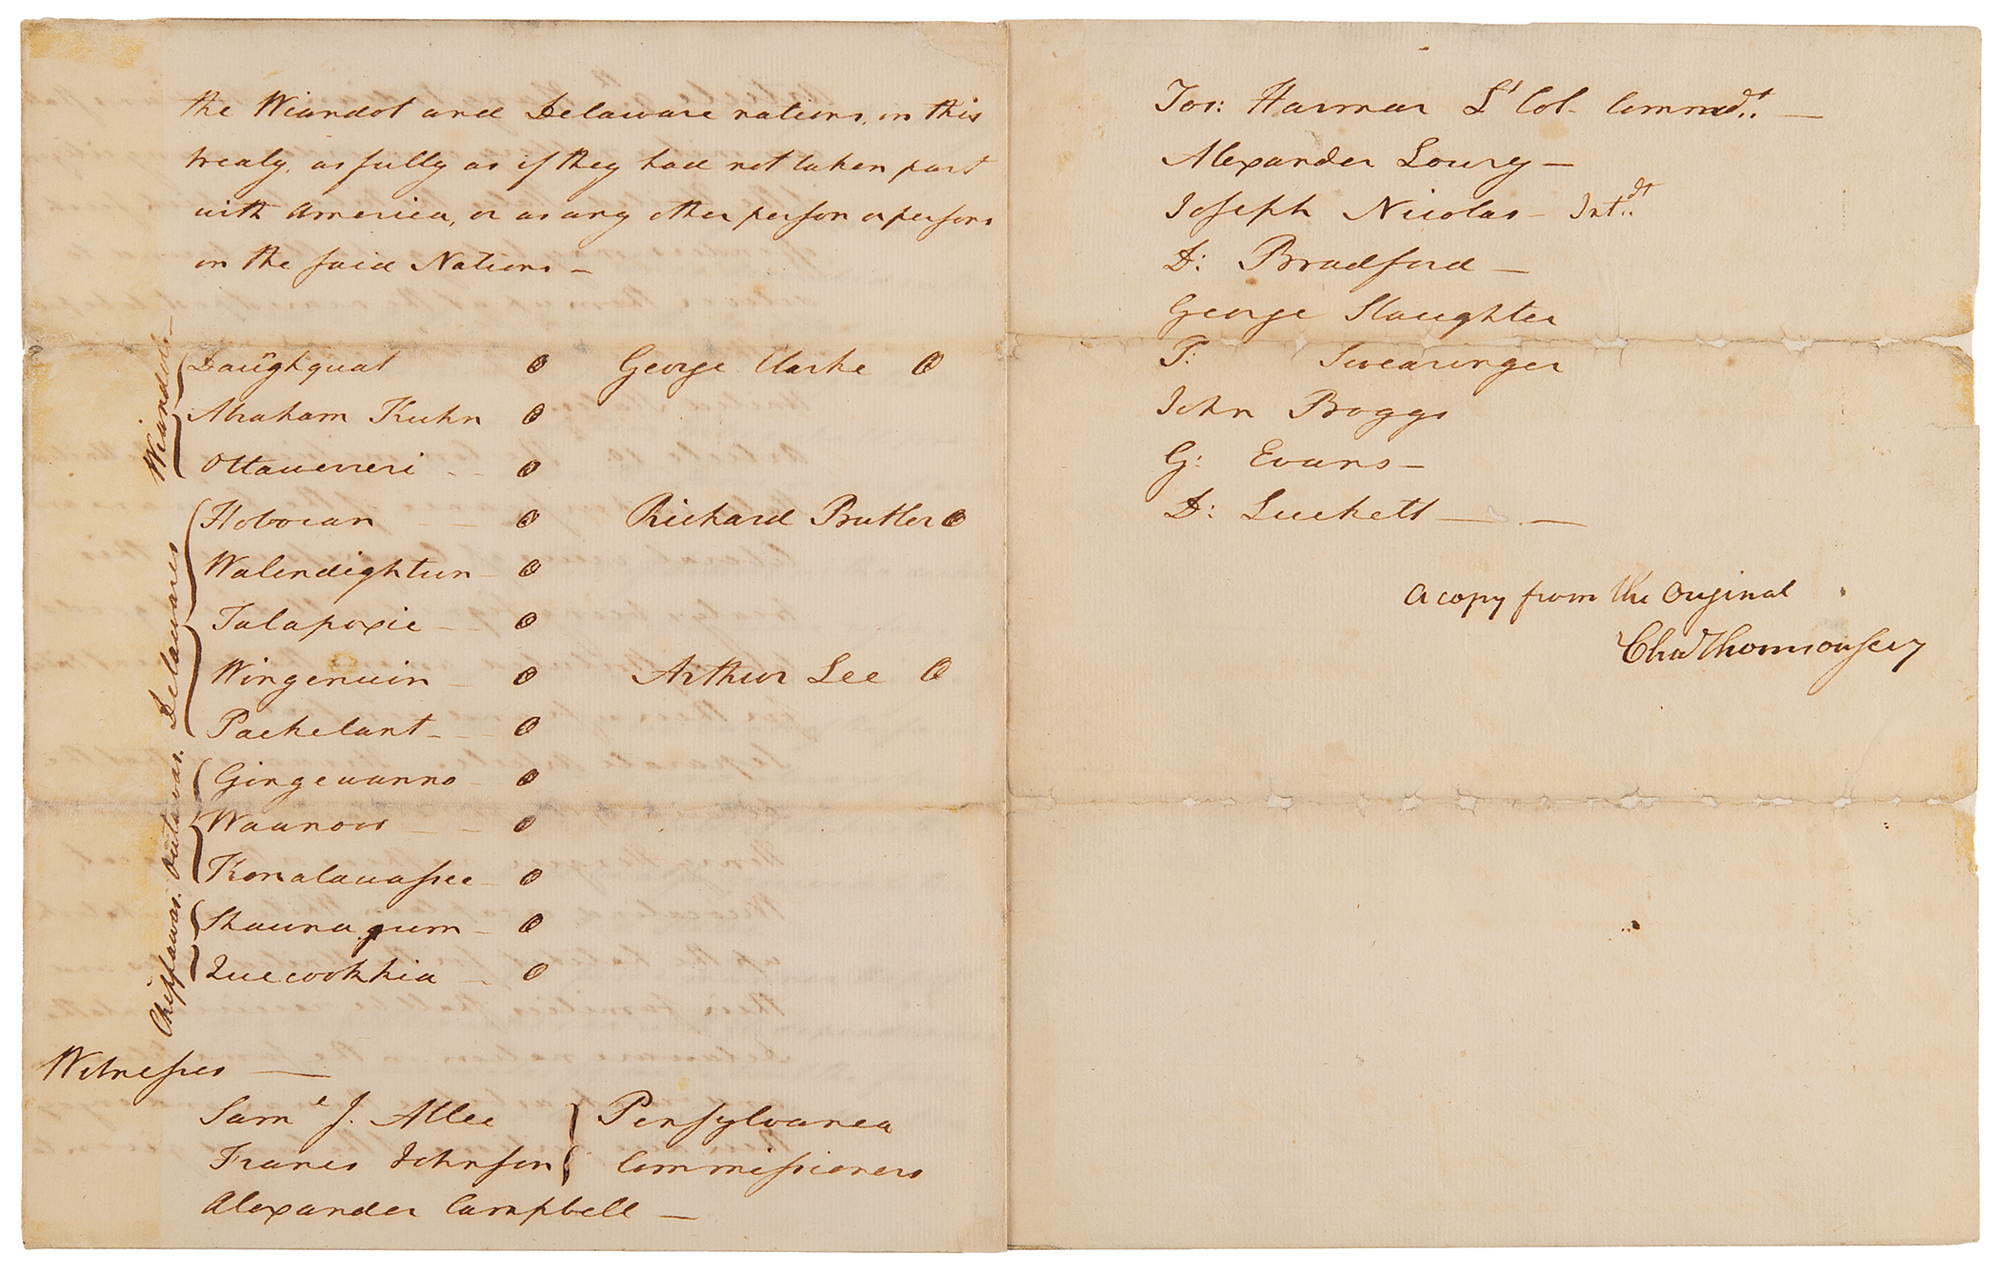 the Wiandot and Delaware nations, in this
treaty, as fully as if they had not taken part
with America, or as any other person or persons
in the said Nations —
Wiandots
Daüghquat O George Clarke O
Abraham Kuhn O
Ottawerreri O
Delawares
Hobocan O Richard Butler O
Walendightun O
Talapoxie O
Wingenuin O Arthur Lee O
Packelant O
Outawas.
Gingewanno O
Waanoos O
Konalawassee O
Chippawas.
Shawnaqum O
Quecookkia O
Witnesses —
Sam.l J. Atlee Pensylvanea
Francis Johnson Commissioners
Alexander Campbell —
Jos: Harmar Lt Col. Commdt. —
Alexander Loury —
Joseph Nicolas — Intdt.
D: Bradford —
George Slaughter
T: Swearinger
John Boggs
G: Evans —
D: Luckett —
A copy from the Original
Chas Thomson secy